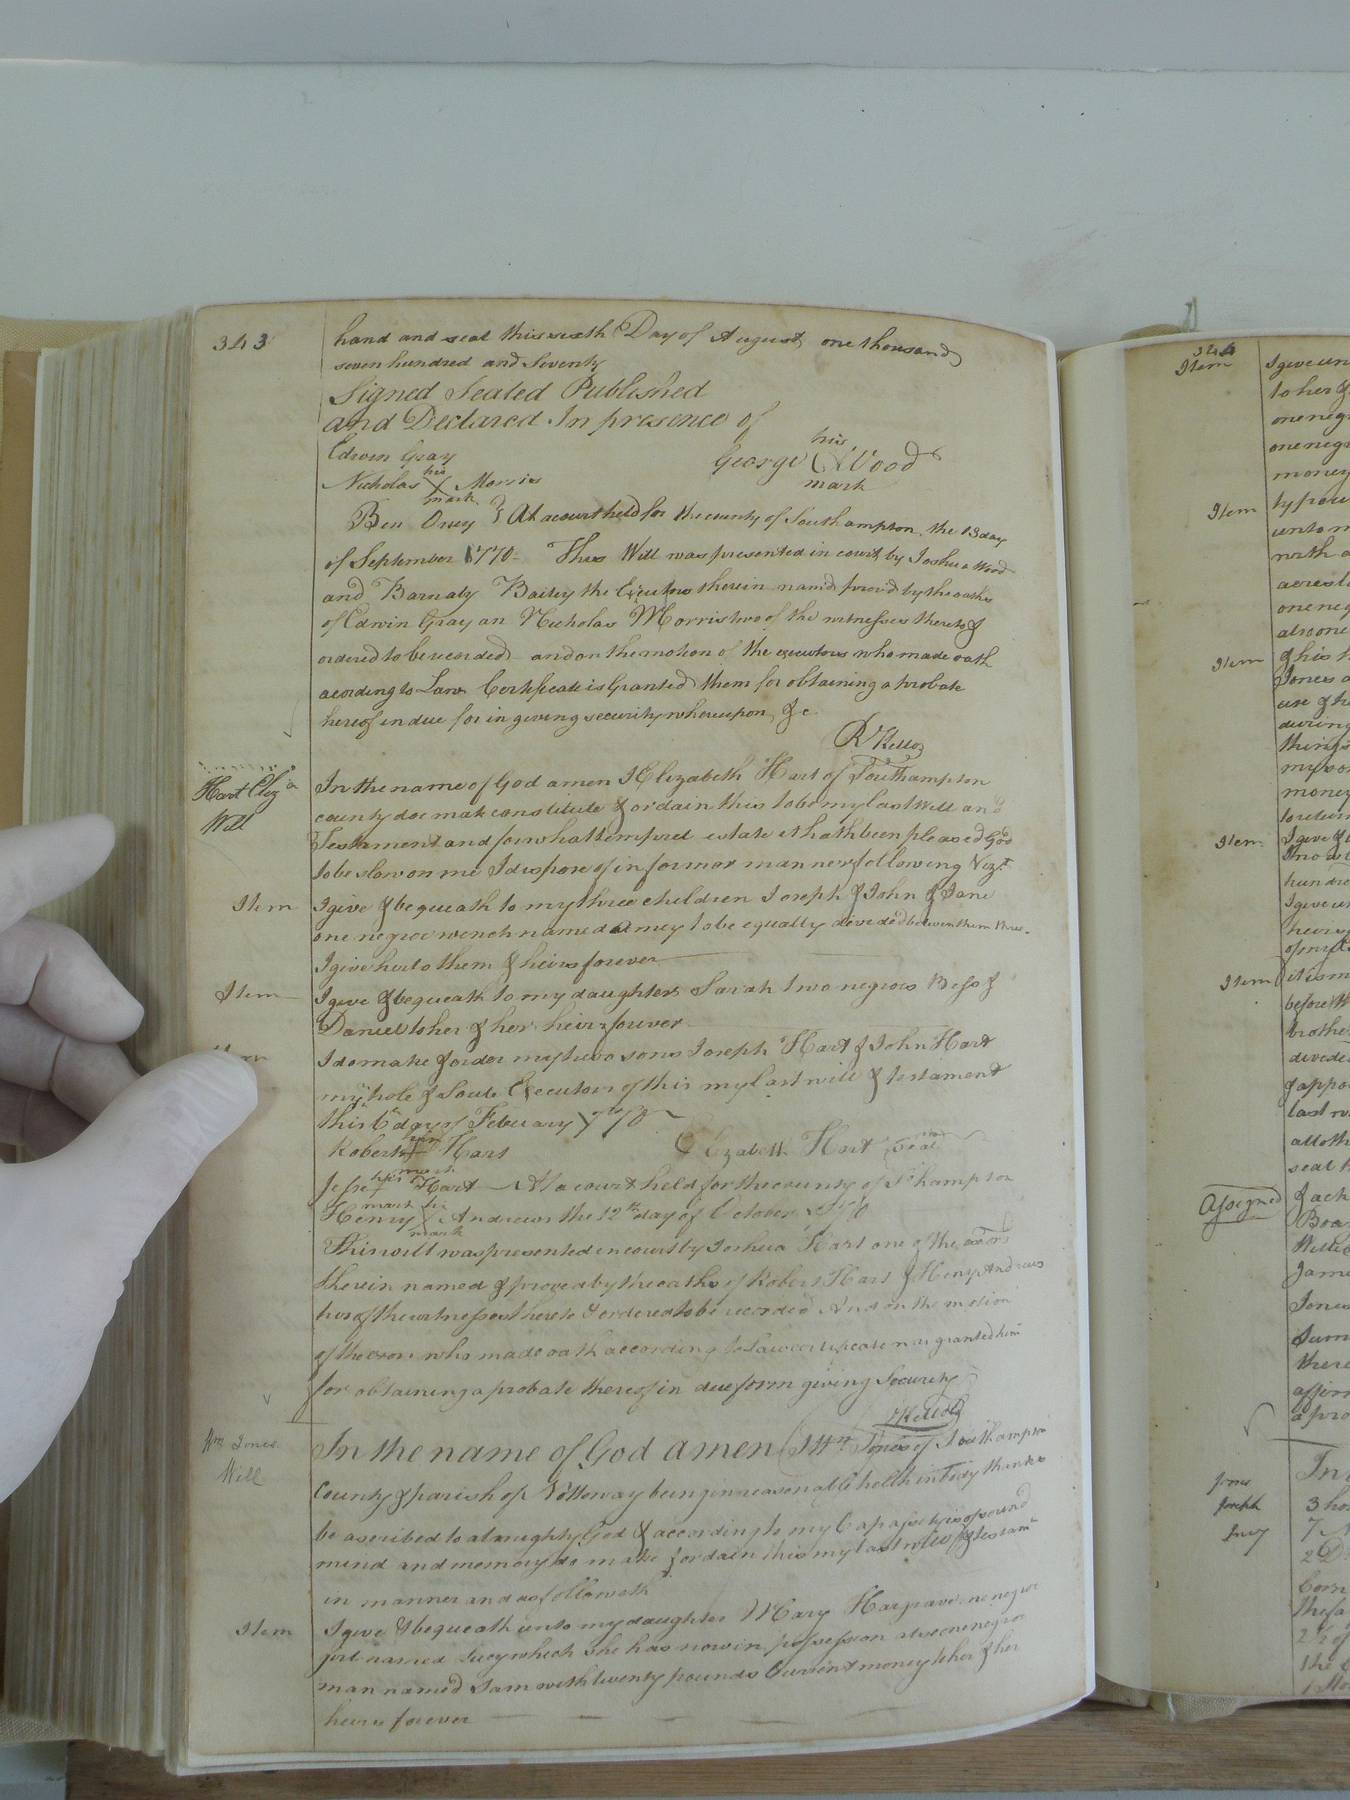 343
hand and seal this sixth Day of August one thousand
seven hundred and Seventy
Signed Sealed Published
and Declared In presence of
Edwin Gray
his
George X Wood
mark
his
Nicholas X Morris
mark
Ben At a court held for the county of Southampton the 13 day
of September 1770 - This Will was presented in court by Joshua Wood
and Barnaby Bailey the Executors therein namd provd by the oaths
of Edwin Gray an Nicholas Morris two of the witnesses thereto &
ordered to be recorded and on the motion of the executors who made oath
acording to Law Certificate is Granted them for obtaining a probate
hereof in due for in giving security whereupon &c
R Kello
Hart Eliz a
Will
In the name of God amen I Elizabeth Hart of Southampton
county doe mak constitute & ordain this to be my last Will and
Testament and for what temporel estate it hath been pleased God
to bestow on me I dispose of in formor manner following Vizt
Item
I give & bequeath to my three children Joseph & John & Jane
one negroe wench named Amey to be equally divided between them three
I give her to them & heirs forever
Item
I give & bequeath to my daughter Sarah two negroes Bess &
Daniel to her & her heirs forever
I do make & order my two sons Joseph Hart & John Hart
my hole & Soule Executors of this my last will & testament
this 6 day of Febuary 1770
Robert Hart
Elizabeth Hart Seal
mark
Jesse Hart At a court held for the county of
mark his
Henry X Andrews the 12th day of October 1770
mark
This will was presented in court by Joshua Hart one of the exors
therein named & proved by the oaths of Robert Hart & Heny Andrews
two of the witnesses thereto & ordered to be recorded And on the motion
of the exors who made oath according to Law certificate is granted him
for obtaining a probate thereof in due form giving Security
R Kello
Wm Jones
Will
In the name of God amen I Wm Jones of Southampton
County & parish of Nottoway being in reasonable helth in Body thanks
be ascribed to almughty God & according to my Capassety is of sound
mind and memory do make & ordain this my last will & testamt
in manner and as followeth
Item
I give & bequeath unto my daughter Mary Hargrave one negroe
girl named Lucy which she has now in possession also one negroe
man named Sam with twenty pounds Current money to her & her
heirs forever
344
Item
I give un
to her &
one neg
one negr
money
Item
unto m
north a
acres l
one neg
also one
Item
& his h
Jones a
use of h
during
things
my son
money
to return
Item
I give & b
hundre
I give un
heirs
of my
Item
it is m
before th
brothe
devide
& appo
last w
all oth
seal
Assigned
& ack
Willi
Jame
Jones
Sum
there
affirm
a pro
Jones
Joseph
Invy
In
3 ho
7 N
Corn